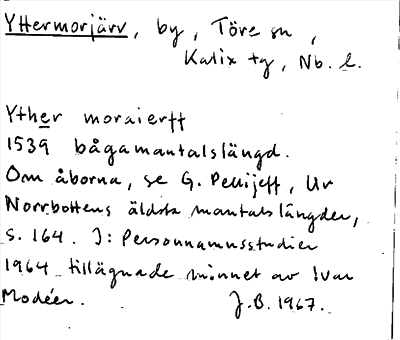 Yttermorjärv, by, Töre sn,
Kalix tg, Nb. l.
Yther moraierff
1539 bågamantalslängd.
Om åborna, se G. Pellijeff, Ur
Norrbottens äldsta mantalslängder,
s. 164. I: Personnamnsstudier
1964 tillägnade minnet av Ivar
Modéer. J.B. 1967.